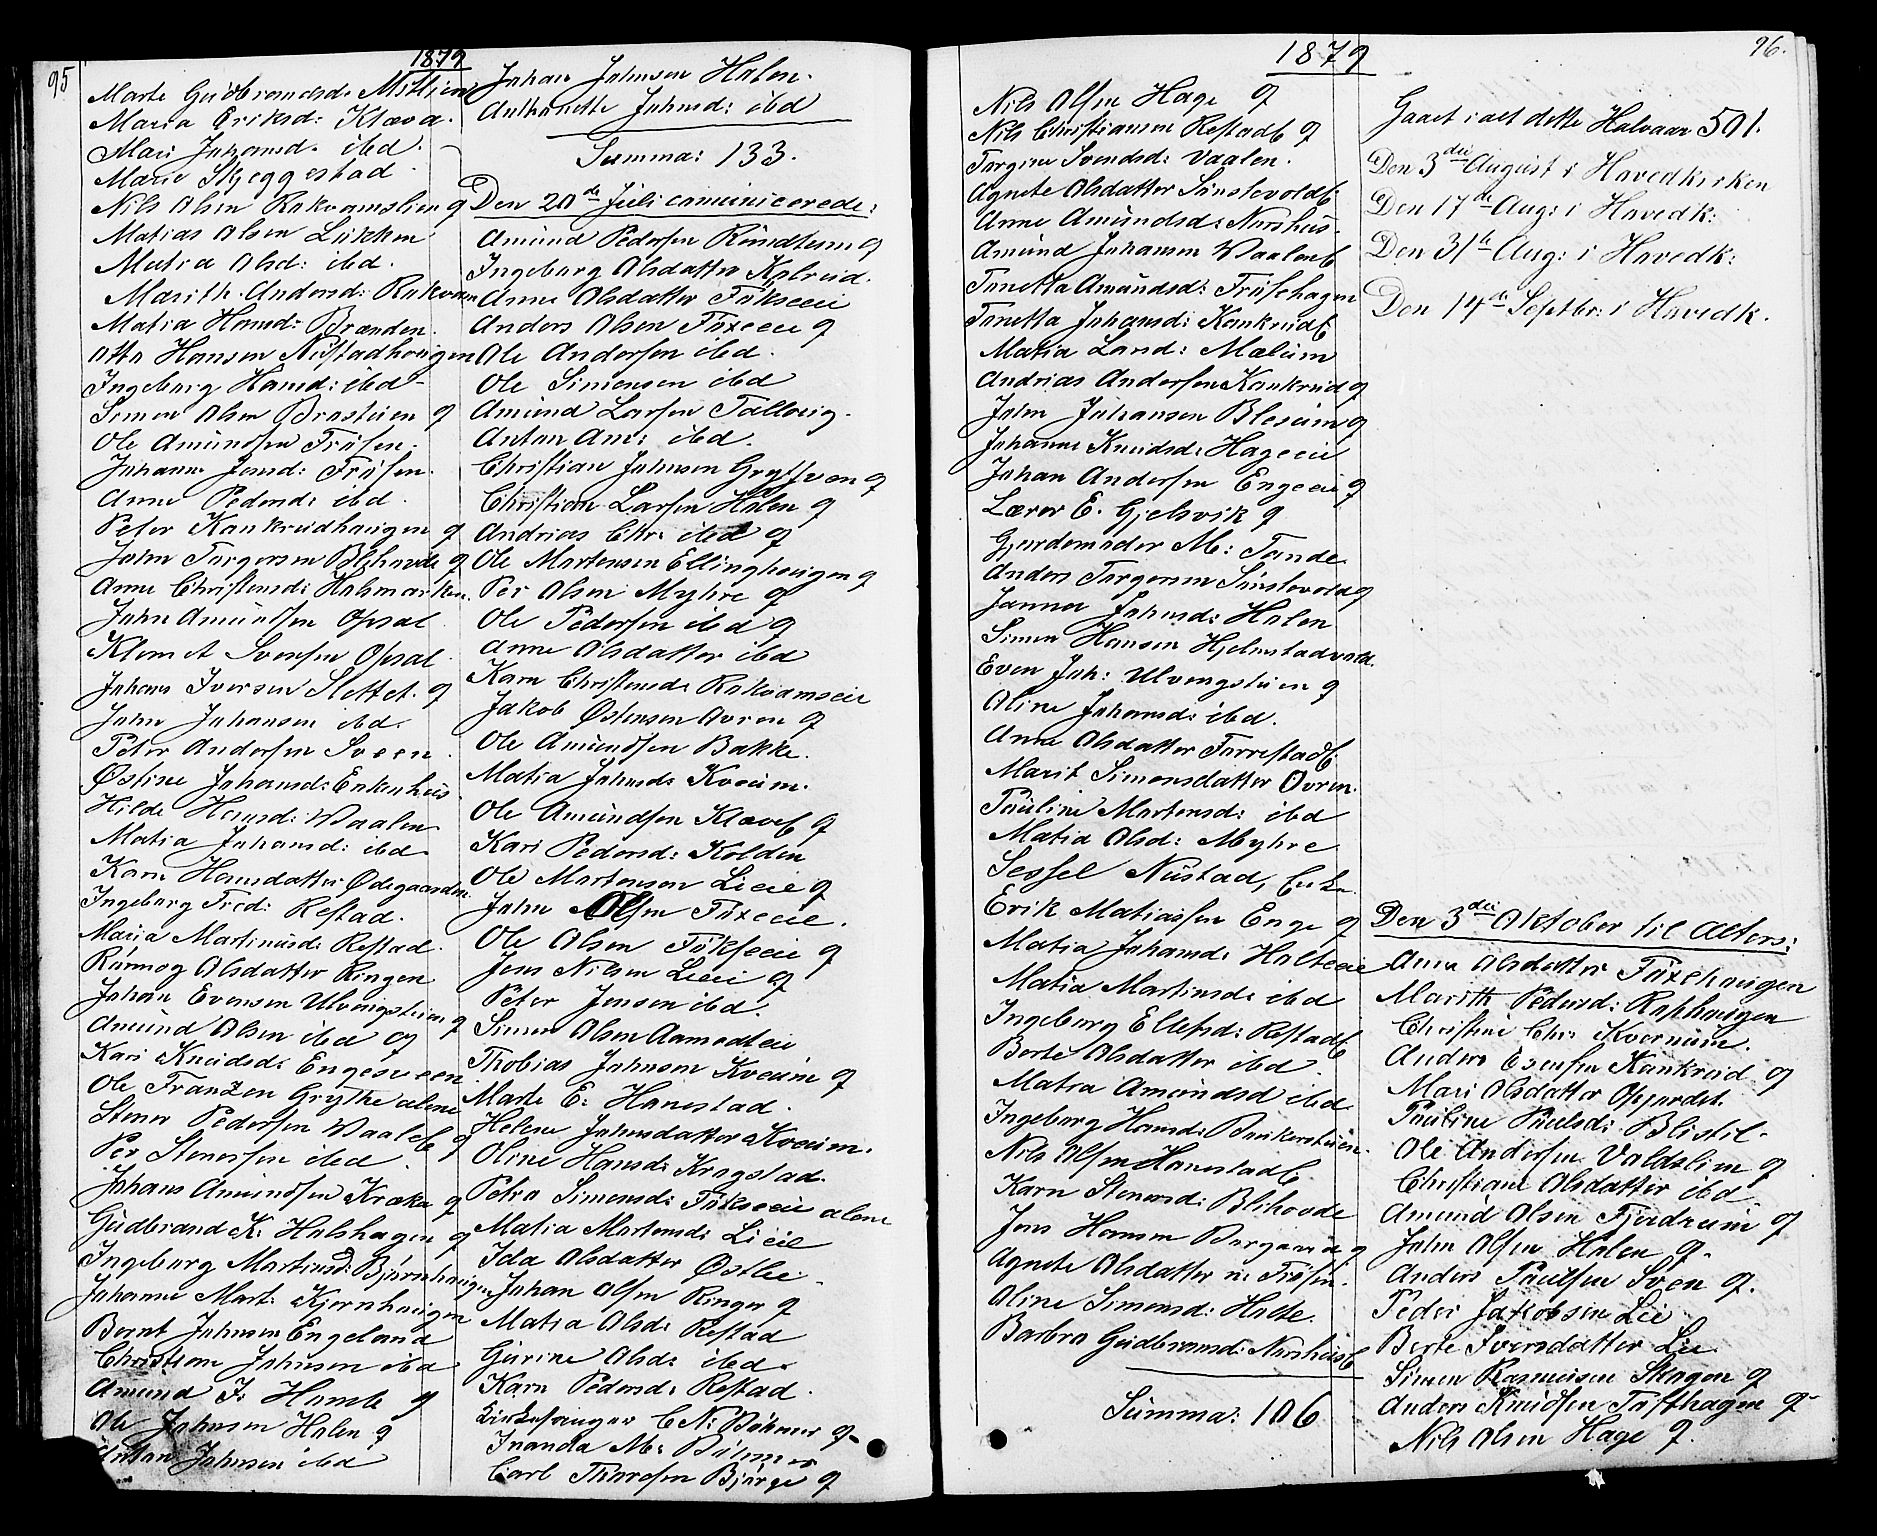 95
1879
Marte Gudbrandsd: Mitlien
Maria Eriksd: Klæva.
Mari Johansd. ibd.
Marie Skjeggestad
Nils Olsen Rokvamslien q
Matias Olsen Lükken
Matia Olsd: ibd.
Marith. Andersd: Rokvam
Matia Hansd: Brænden.
Otto Hansen Nustadhougen
Ingeborg Hansd: ibd
Simen Olsen Brostuen q
Ole Amundsen Frøsen.
Johanne Jonsd: Frøsen.
Anne Pedersd: ibd.
Peter Kankrudhaugen q
John Torgersen Blihovde q
Anne Christensd: Holsmarken.
John Amundsen Opsal
Klemet Svensen Opsal
Johans Iversen Slettet. q
John Johansen ibd.
Peter Andersen Sveen.
Østine Johansd: Enkenhus
Hilde Hansd: Waalen
Matia Johansd: ibd.
Karn Hansdatter Ødegaarden
Ingeborg Fred: Restad.
Maria Martinusd: Restad.
Rønnog Olsdatter Ringen
Johan Evensen Ulvengstuen q
Amund Olsen ibd q
Kari Knudsd: Engesveen
Ole Franzen Grythe alene
Stener Pedersen Waaleb q
Per Stenersen ibd
Johans Amundsen Kræka q
Gudbrand K: Holshagen q
Ingeborg Martinsd: Bjørnhaugen
Johanne Mart: Kjernhaugen
Bernt Johnsen Engeland
Christian Johnsen ibd
Amund J: Homle q
Ole Johnsen Holen q
Anton Johnsen ibd
Johan Johnsen Holen.
Anthonette Johnsd: ibd
Summa: 133.
Den 20de Juli comunicerede:
Amund Pedersen Rundtum q
Ingeborg Olsdatter Kalrud.
Anne Olsdatter Fökseeie
Anders Olsen Foxeeie q
Ole Andersen ibd.
Ole Simensen ibd
Amund Larsen Tallaug.
Anton Am: ibd.
Christian Johnsen Grythven q
Christian Larsen Holen q
Andrias Chr: ibd q
Ole Martensen Ellinghougen q
Per Olsen Myhre q
Ole Pedersen ibd q
Anne Olsdatter ibd
Karn Christensd: Rokvamseie
Jakob Østensen Ovren q
Ole Amundsen Bakke.
Matia Johnsd: Kveum.
Ole Amundsen Klæveb q
Kari Pedersd: Kolden
Ole Martensen Lieeie q
John Olsen Foxeeie.
Ole Olsen Fökseeie q
Jens Nilsen Lieeie q
Peter Jensen ibd.
Simen Olsen Aamodteie
Thobias Johnsen Kveum q
Marte E: Hanestad.
Helene Johnsdatter Kveum.
Oline Hansd: Krogstad.
Petra Simensd: Fökseeie alene
Matia Martensd: Lieeie
Ida Olsdatter Østlie.
Johan Olsen Ringen q
Matia Olsd: Restad
Gurine Olsd: ibd.
Karn Pedersd: Restad.
Kirkesanger C N: Böhmer q
Inanda M: Böhmer
Carl Thoresen Bjørge q
1879
96.
Nils Olsen Hage q
Nils Christiansen Restadb q
Torgine Svendsd: Vaalen.
Agnete Olsdatter Sønstevoldb
Anne Amundsd: Nordhus.
Amund Johansen Waaleb
Tonetta Amundsd: Frøsehagen
Tonetta Johansd: Kankrudb
Matia Land: Mælum
Andrias Andersen Kankrud q
John Johansen Blesum q
Johanne Knudsd: Hageeie
Johan Andersen Engeeie q
Lærer E. Gjelsvik q
Gjordemoder M: Tande
Anders Torgersen Sønstevold q
Janna Johnsd: Holen
Simen Hansen Hjelmstadvold.
Even Joh: Ulvengstuen q
Oline Johansd: ibd.
Anne Olsdatter Torrestadb
Marit Simensdatter Ovren.
Pauline Martensd: ibd
Matia Olsd: Myhre
Sessel Nustad, Enke.
Erik Matiassen Enge q
Matia Johansd: Holteeie
Matia Martinsd: ibd
Ingeborg Ellefsd: Restadb
Berte Olsdatter ibd
Matia Amundsd ibd
Ingeborg Hansd: Bankerstuen.
Nils Olsen Hanestadb
Karn Stenersd: Blihovde
Jens Hansen Bergum q
Agnete Olsdatter n: Frøsen.
Oline Simensd: Hatte.
Barbro Gudbrandsd: Nordhusb
Summa: 106
Gaaet i alt dette Halvaar 501.
Den 3die August i Hovedkirken
Den 17de Aug: i Hovedk:
Den 31te Aug: i Hovedk:
Den 14de Septbr: i Hovedk.
Den 3die Oktober til Alters:
Anne Olsdatter Foxehaugen
Marith Pedersd: Raphougen
Christine Chr: Kvernum.
Anders Evensen Kankrud q
Mari Olsdatter Ofjordet.
Pauline Paulsd: Blistil.
Ole Andersen Voldslien q
Christiane Olsdatter ibd
Amund Olsen Fjerdrum q
John Olsen Holen q.
Anders Poulsen Sveen q.
Peder Jakobsen Lie
Berte Iversdatter Lie.
Simen Rasmusen Skogen q
Anders Knudsen Tofthagen q
Nils Olsen Hage q.